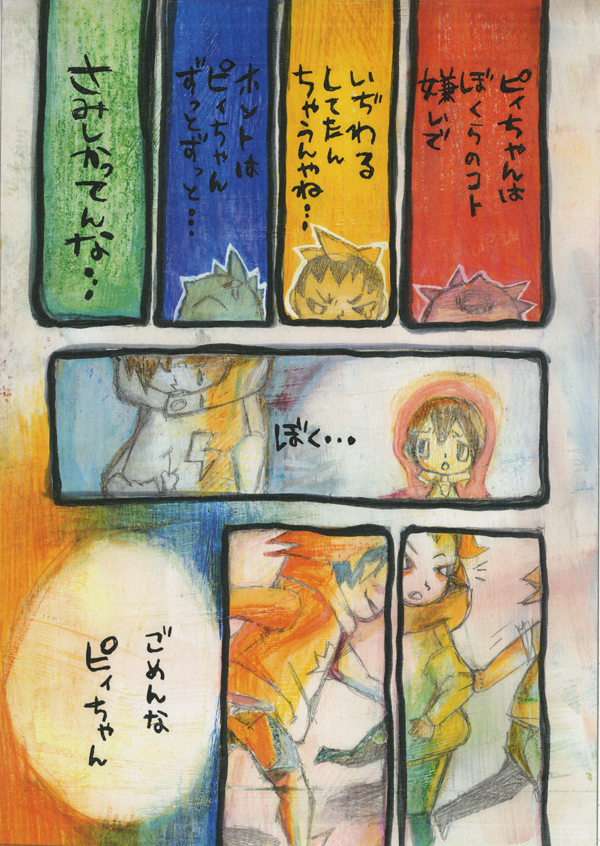 ピィちゃんは
ぼくらのコト
嫌いで
いぢわる
してたん
ちゃうんやね…
ホントは
ピィちゃん
ずっとずっと…
さみしかってんな…
ぼく…
ごめんな
ピィちゃん